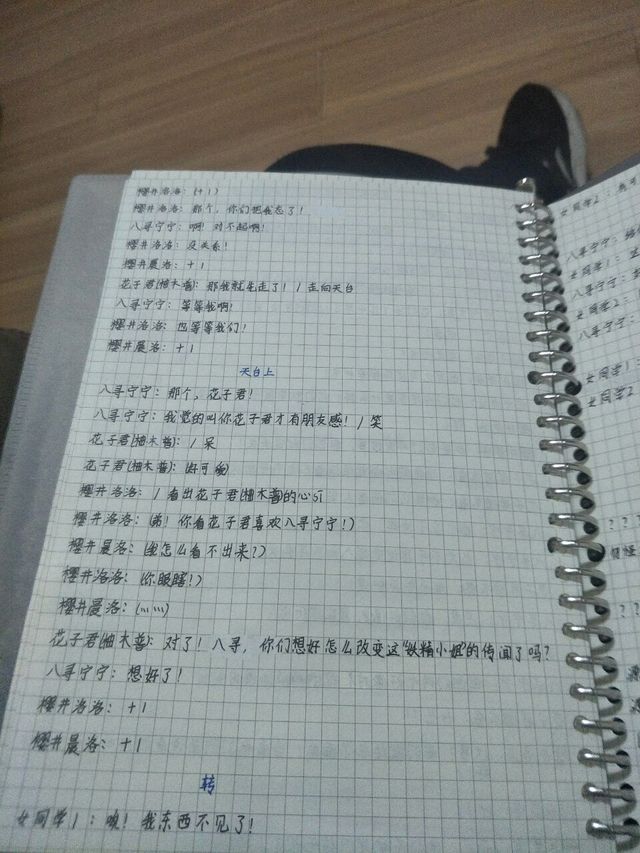 樱井洛洛：(+1)
樱井洛洛：那个，你们把我忘了！
八寻宁宁：啊！对不起啊！
樱井洛洛：没关系！
樱井晨洛：+1
花子君(柚木普)：那我就先走了！/走向天台
八寻宁宁：等等我啊！
樱井洛洛：也等等我们！
樱井晨洛：+1
天台上
八寻宁宁：那个，花子君！
八寻宁宁：我觉的叫你花子君才有朋友感！/笑
花子君(柚木普)：/呆
花子君(柚木普)：(好可爱)
樱井洛洛：/看出花子君(柚木普)的心
樱井洛洛：(弟！你看花子君喜欢八寻宁宁！)
樱井晨洛：(我怎么看不出来？)
樱井洛洛：(你眼瞎！)
樱井晨洛：(…… )
花子君(柚木普)：对了！八寻，你们想好怎么改变这"妖精小姐"的传闻了吗？
八寻宁宁：想好了！
樱井洛洛：+1
樱井晨洛：+1
转
女同学1：咦！我东西不见了！
女同学2：
八寻宁宁：
女同学1：
八寻宁宁：
女同学2：
八寻宁宁：
女同学1：
女同学2
？？
？？